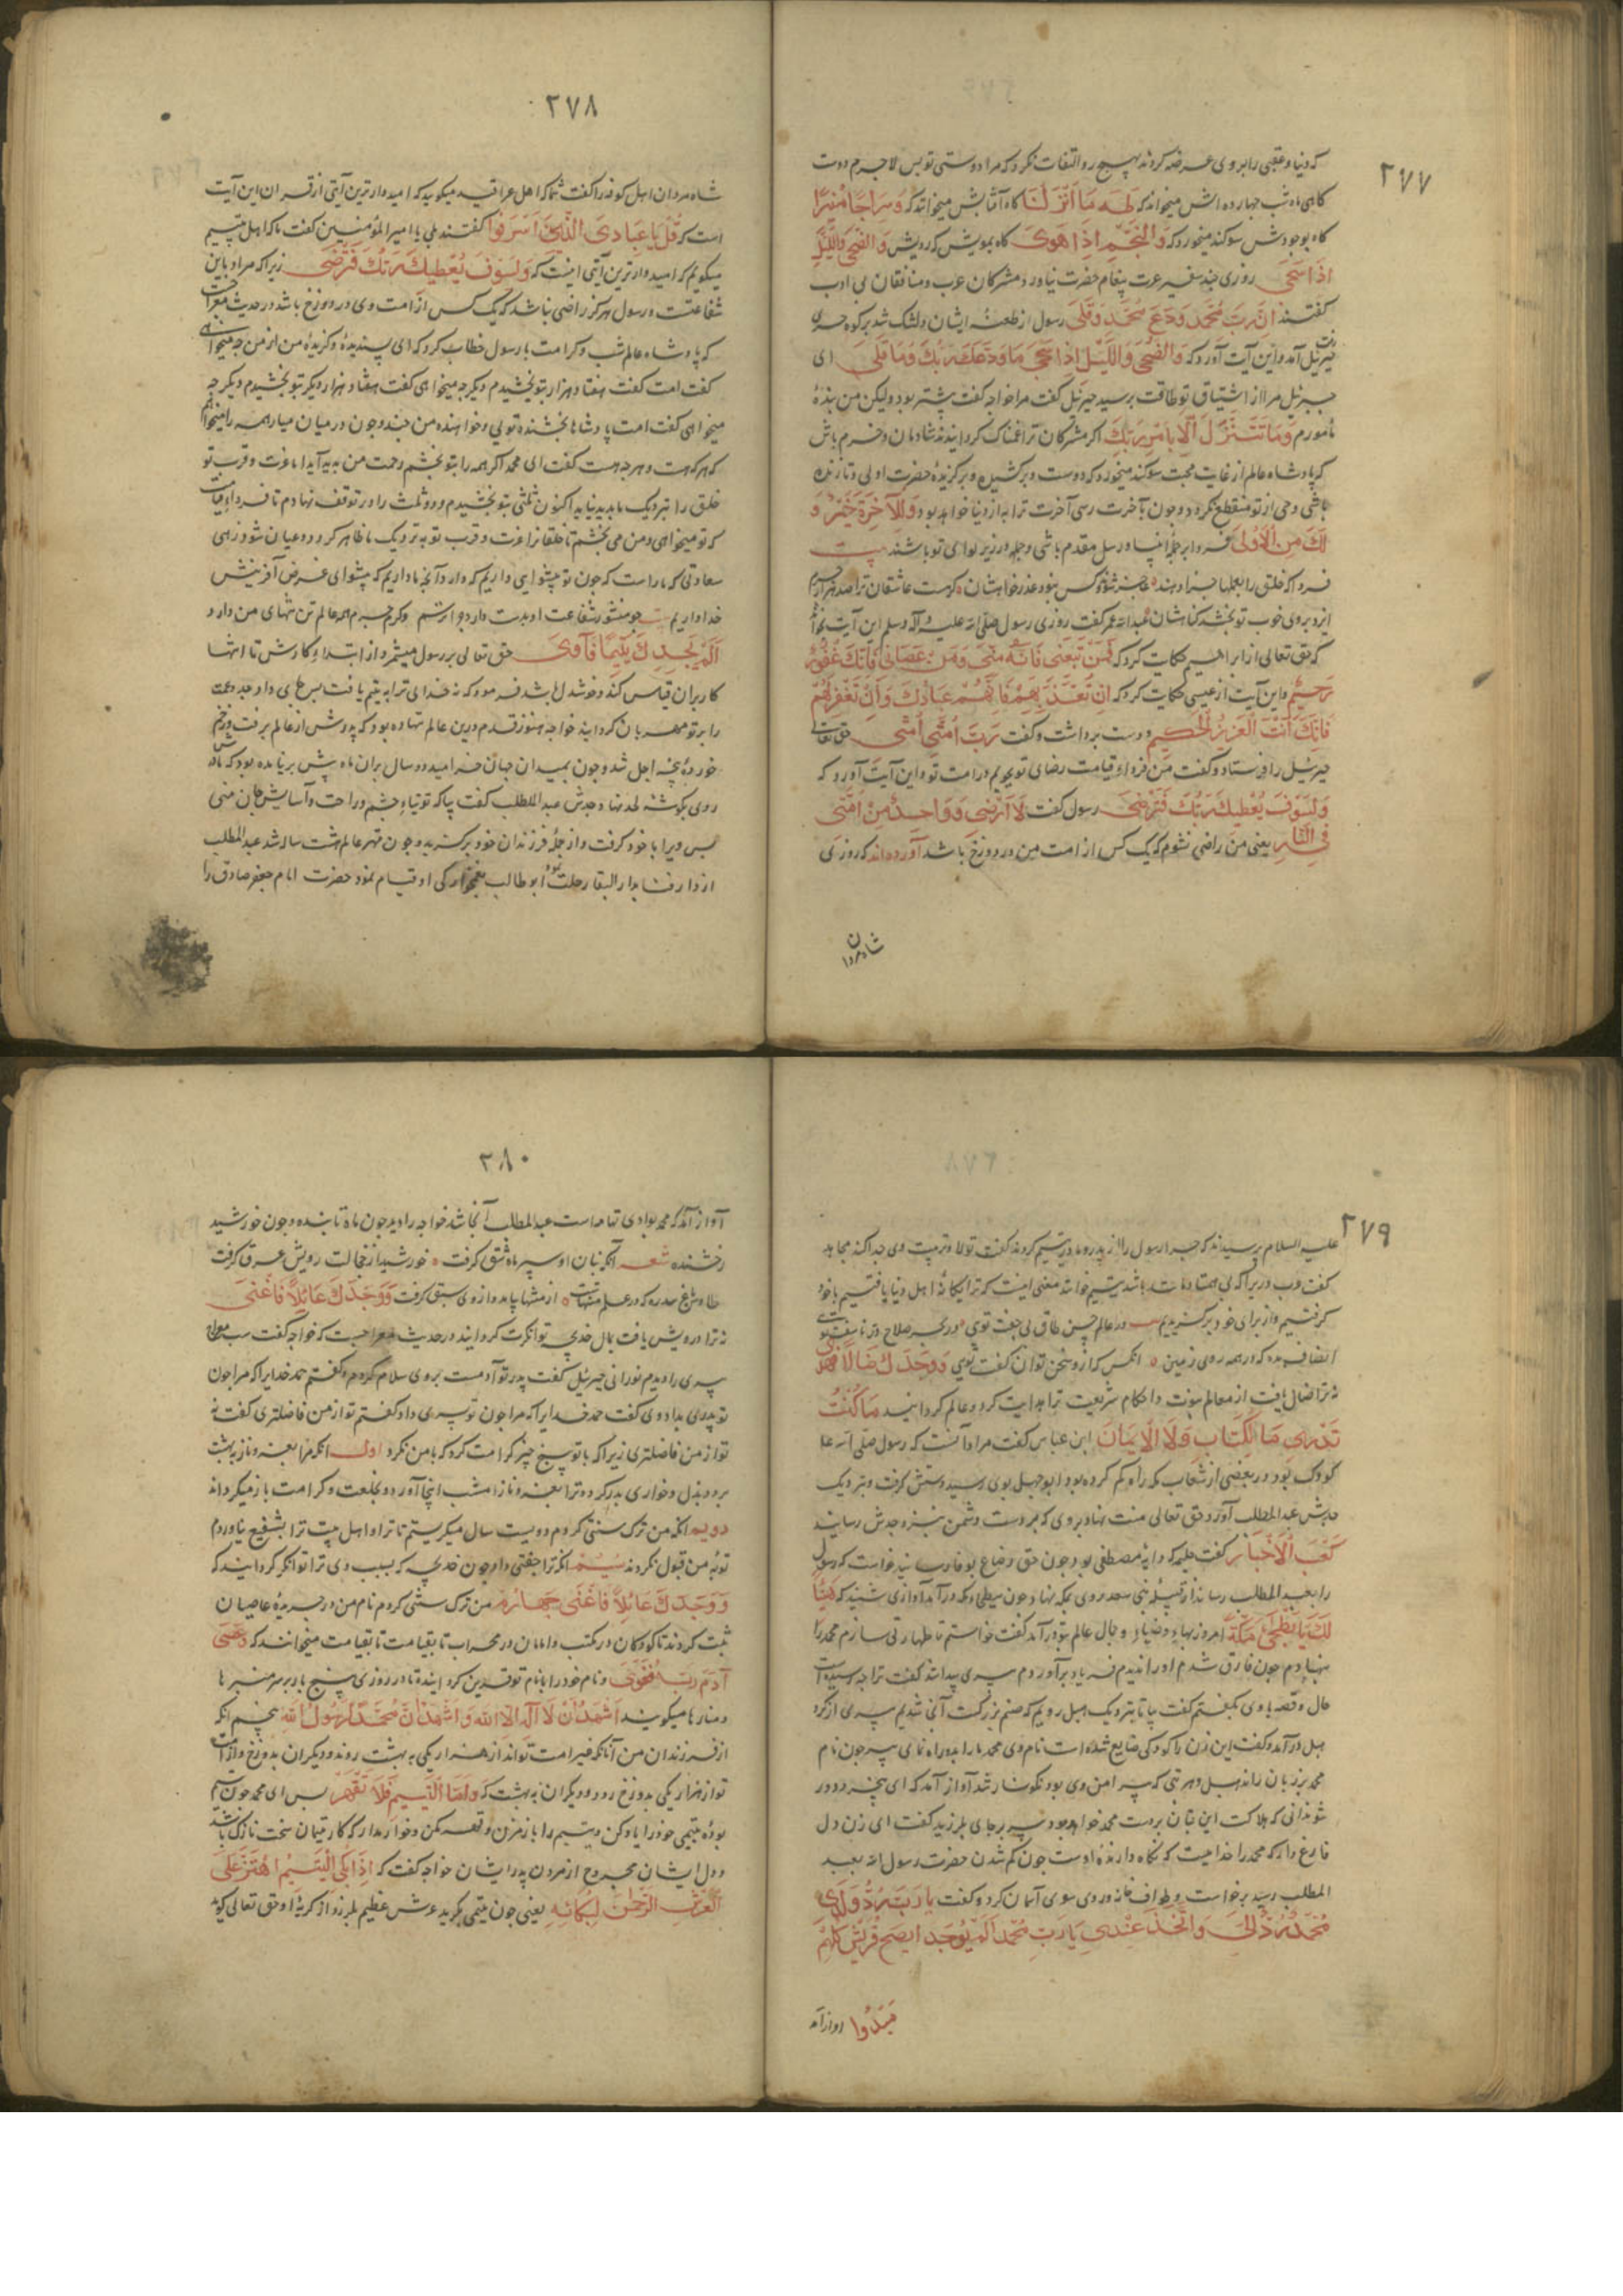 ۲۷۷
که دنیا و عقبی را بر وی عرضه کردند بهیچ رو التفات نکرد که مرا دوستی تو بس لاجرم دوست
کاهی ماه شب چهارده اش میخواند که طه ما انزلنا کاه آفتابش میخواند که وسراجا منیرا
کاه بوجودش سوکند میخورد که والنجم اذا هوی کاه بمویش که رویش والضحی واللیل
اذا سجی روزی چند سفیر عزت پیغام حضرت نیاورد مشرکان عرب و منافقان بی ادب
کفتند ان رب محمد ودع محمد وقلی رسول از طعنه ایشان دلتنک شد بر کوه حری
جبرئیل آمد و این آیت آورد که والضحی واللیل اذا سجی ما ودعک ربک وما قلی ای
جبرئیل مرا از اشتیاق تو طاقت برسید جبرئیل کفت مرا خواجه کفت بیشتر بود ولیکن من بنده
مأمورم وما نتنزل الا بامر ربک اکر مشرکان ترا غمناک کردانیدند شادمان و خرم باش
که پادشاه عالم از غایت محبت سوکند میخورد که دوست و برکشیده و برکزیده حضرت اولی و تا زنده
باشی وحی از تو منقطع نکردد و چون بآخرت رسی آخرت ترا به از دنیا خواهد بود وللآخرة خیر
لک من الاولی فردا بر جمله انبیا و رسل مقدم باشی و جمله در زیر لوای تو باشند بیت
فردا که خلق را بعملها جزا دهند جز تو کس نبود عذرخواهشان کرهست عاشقان ترا صد هزار جرم
ایزد بروی خوب تو بخشد کناهشان عبدالله عمر کفت روزی رسول صلی الله علیه وآله وسلم این آیت بخواند
که حق تعالی از ابراهیم حکایت کرد که فمن تبعنی فانه منی ومن عصانی فانک غفور
رحیم و این آیت از عیسی حکایت کرد که ان تعذبهم فانهم عبادک وان تغفر لهم
فانک انت العزیز الحکیم و دست برداشت و کفت رب امتی امتی حق تعالی
جبرئیل را فرستاد و کفت من فردای قیامت رضای تو بجویم در امت تو و این آیت آورد که
ولسوف یعطیک ربک فترضی رسول کفت لا ارضی وواحد من امتی
فی النار یعنی من راضی نشوم که یک کس از امت من در دوزخ باشد آورده اند که روزی
شاه مردان
۲۷۸
شاه مردان اهل کوفه را کفت شما که اهل عراقید میکویید که امیدوارترین آیتی از قرآن این آیت
است که قل یا عبادی الذین اسرفوا کفتند بلی یا امیرالمؤمنین کفت ما که اهل بیتیم
میکوئیم که امیدوارترین آیتی اینست که ولسوف یعطیک ربک فترضی زیرا که مراد باین
شفاعتست و رسول هرکز راضی نباشد که یک کس از امت وی در دوزخ باشد در حدیث معراجست
که پادشاه عالم شب کرامت با رسول خطاب کرد که ای پسندیده و کزیده من از من چه میخواهی
کفت امت کفت هفتاد هزار بتو بخشیدم دیکر چه میخواهی کفت هفتاد هزار دیکر بتو بخشیدم دیکر چه
میخواهی کفت امت پادشاها بخشنده تویی و خواهنده من چند و چون در میان میار همه را میخواهم
که هرکه هست و هرچه هست کفت ای محمد اکر همه را بتو بخشم رحمت من پدید آید اما عزت و قرب تو
خلق را نزدیک ما پدید نیاید اکنون ثلثی بتو بخشیدم و دو ثلث را در توقف نهادم تا فردای قیامت
که تو میخواهی و من می بخشم تا خلقان را عزت و قرب تو بنزدیک ما ظاهر کردد و عیان شود زهی
سعادتی که ما راست که چون تو پیشوایی داریم که دارد آنچه ما داریم که پیشوای غرض آفرینش
خدا داریم بیت چو منشور شفاعت او بدست دارد چه اندیشم وکر جرم همه عالم تن تنهای من دارد
الم یجدک یتیما فآوی حق تعالی بر رسول میشمرد از ابتدای کارش تا انتها
کار بران قیاس کند و خوشدل باشد فرمود که نه خدای ترا یتیم یافت
را بر تو مهربان کردانید خواجه هنوز قدم درین عالم ننهاده بود که پدرش از عالم برفت
خورده اجل شد و چون بمیدان جهان خرامید دو سال بران ماه پیش برنیامده بود که مادرش
روی بکوشه لحد نهاد جدش عبدالمطلب کفت بیا که توتیای چشم و راحت و آسایش جان منی
پس ویرا با خود کرفت و از جمله فرزندان خود برکزید و چون مهتر عالم هشت ساله شد عبدالمطلب
از دار فنا بدار البقا رحلت نمود ابوطالب بغمخوارکی او قیام نمود حضرت امام جعفر صادق را
۲۷۹
علیه السلام پرسیدند که چرا رسول را از پدر و مادر یتیم کردند کفت تا ولا و تربیت وی جدا کند مجاهد
کفت عرب دری را که بی همتا و مانند باشد یتیم خوانند معنی اینست که ترا یکانه اهل دنیا یافتیم با خود
کرفتیم و از برای خود برکزیدیم بیت در عالم حسن طاق بی جفت تویی در بحر صلاح در ناسفت تویی
انصاف بده که در همه روی زمین آنکس که از و سخن توان کفت تویی ووجدک ضالا فهدی
نه ترا ضال یافت از معالم نبوت و احکام شریعت ترا هدایت کرد و عالم کردانید ما کنت
تدری ما الکتاب ولا الایمان ابن عباس کفت مراد آنست که رسول صلی الله علیه
کودک بود در بعضی از شعاب مکه راه کم کرده بود ابوجهل بوی رسید دستش کرفت و بنزدیک
جدش عبدالمطلب آورد حق تعالی منت نهاد بر وی که بر دست دشمن بنزد جدش رسانید
کعب الاحبار کفت حلیمه که دایه مصطفی بود چون حق رضاع بوفا رسانید خواست که رسول
را بعبدالمطلب رساند از قبیله بنی سعد روی بمکه نهاد چون ببطحای مکه درآمد آوازی شنید که هنیئا
لک یا بطحاء مکة امروز بهاء و ضیاء و جمال عالم بتو درآمد کفت خواستم تا طهارتی سازم محمد را
بنهادم چون فارغ شدم او را ندیدم فریاد برآوردم پیری پیدا شد کفت ترا چه رسیده است
حال و قصه با وی بکفتم کفت بیا تا بنزدیک هبل رویم که صنم بزرکست آنجا شدیم پیری از کرد
هبل درآمد و کفت این زن را کودکی ضایع شده است نام وی محمد ما را بدو راه نمای پیر چون نام
محمد بر زبان راند هبل و هر بتی که پیرامن وی بود نکونسار شد آواز آمد که ای پیر دور
شو ندانی که هلاکت این بتان بدست محمد خواهد بود پیر بر جای بلرزید کفت ای زن دل
فارغ دار که محمد را خداییست که نکاه دارنده اوست چون کم شدن حضرت رسول الله بعبد
المطلب رسید برخاست و طواف خانه و روی سوی آسمان کرد و کفت یا رب رد ولدی
محمد رد الی واتخذ عندی یا رب محمد الم یوجد اصبح قریش کلهم
مبددوا آواز آمد
۲۸۰
آواز آمد که محمد بوادی تهامه است عبدالمطلب آنجا شد خواجه را دید چون ماه تابنده و چون خورشید
رخشنده شعر آنکه بنان او سپر ماه شق کرفت خورشید از خجالت رویش عرق کرفت
طاوس باغ سدره که در علم منتهاست از منتها بیامد و از وی سبق کرفت ووجدک عائلا فاغنی
نه ترا درویش یافت بمال خدیجه توانکرت کردانید در حدیث معراجست که خواجه کفت شب معراج
پیری را دیدم نورانی جبرئیل کفت پدر تو آدمست بروی سلام کردم و کفتم حمد خدایرا که مرا چون
تو پدری بداد وی کفت حمد خدایرا که مرا چون تو پسری داد کفتم تو از من فاضلتری کفت نه
تو از من فاضلتری زیرا که با تو پنج چیز کرامت کرد که با من نکرد اول آنکه مرا بعز و ناز ببهشت
برد و بذل و خواری بدر کرد و ترا بعز و ناز امشب اینجا آورد و بخلعت و کرامت باز میکرداند
دویم آنکه من ترک سنتی کردم دویست سال میکریستم تا ترا و اهل بیت ترا بشفیع نیاوردم
توبه من قبول نکردند سیم آنکه ترا جفتی داد چون خدیجه که بسبب وی ترا توانکر کردانید که
ووجدک عائلا فاغنی چهارم من ترک سنتی کردم نام من در جریده عاصیان
ثبت کردند تا کودکان در مکتب و امامان در محراب تا بقیامت میخوانند که وعصی
آدم ربه فغوی و نام خود را با نام تو قرین کردانید تا در روزی پنج بار بر سر منبرها
و منارها میکویند اشهد ان لا اله الا الله واشهد ان محمدا رسول الله پنجم آنکه
از فرزندان من آنانکه غیر امت تواند از هزار یکی به بهشت روند و دیکران بدوزخ و از امت
تو از هزار یکی بدوزخ رود و دیکران به بهشت که واما الیتیم فلا تقهر پس ای محمد چون یتیم
بوده یتیمی خود را یاد کن و یتیم را باز مزن و قهر مکن و خوار مدار که کار یتیمان سخت نازک باشد
و دل ایشان مجروح از مردن پدر ایشان خواجه کفت که اذا بکی الیتیم اهتز علی
العرش الرحمن لبکائه یعنی چون یتیمی بکرید عرش عظیم بلرزد از کریه او حق تعالی کوید